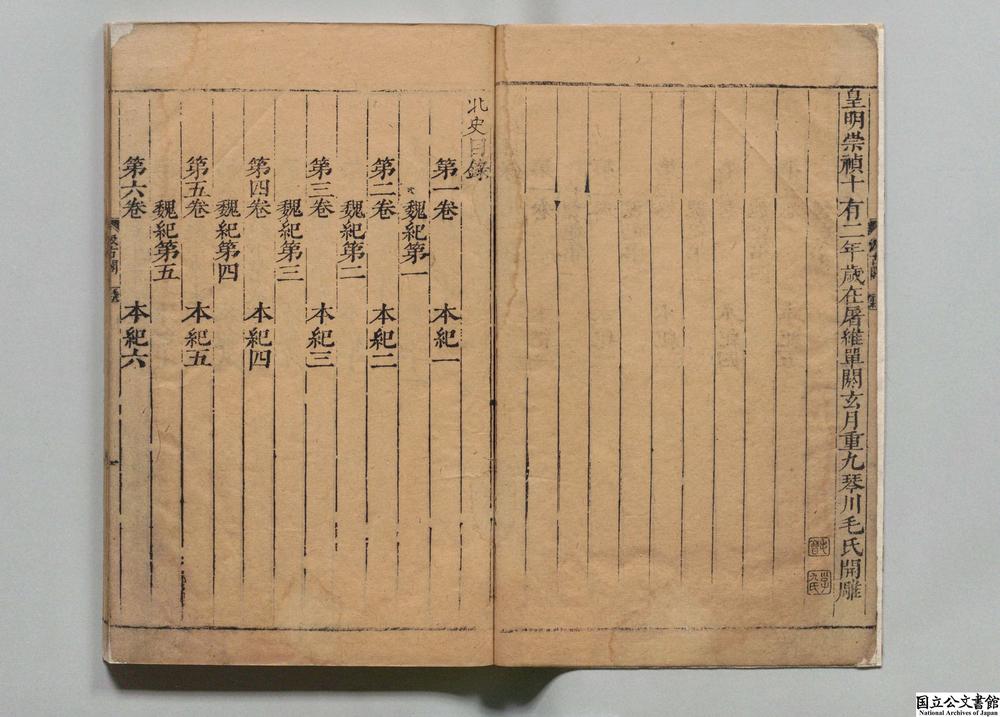 皇明崇禎十有二年歲在屠維單閼玄月重九琴川毛氏開雕
北史目錄
第一卷 本紀一
魏紀第一
第二卷 本紀二
魏紀第二
第三卷 本紀三
魏紀第三
第四卷 本紀四
魏紀第四
第五卷 本紀五
魏紀第五
第六卷 本紀六
汲古閣
国立公文書館
National Archives of Japan